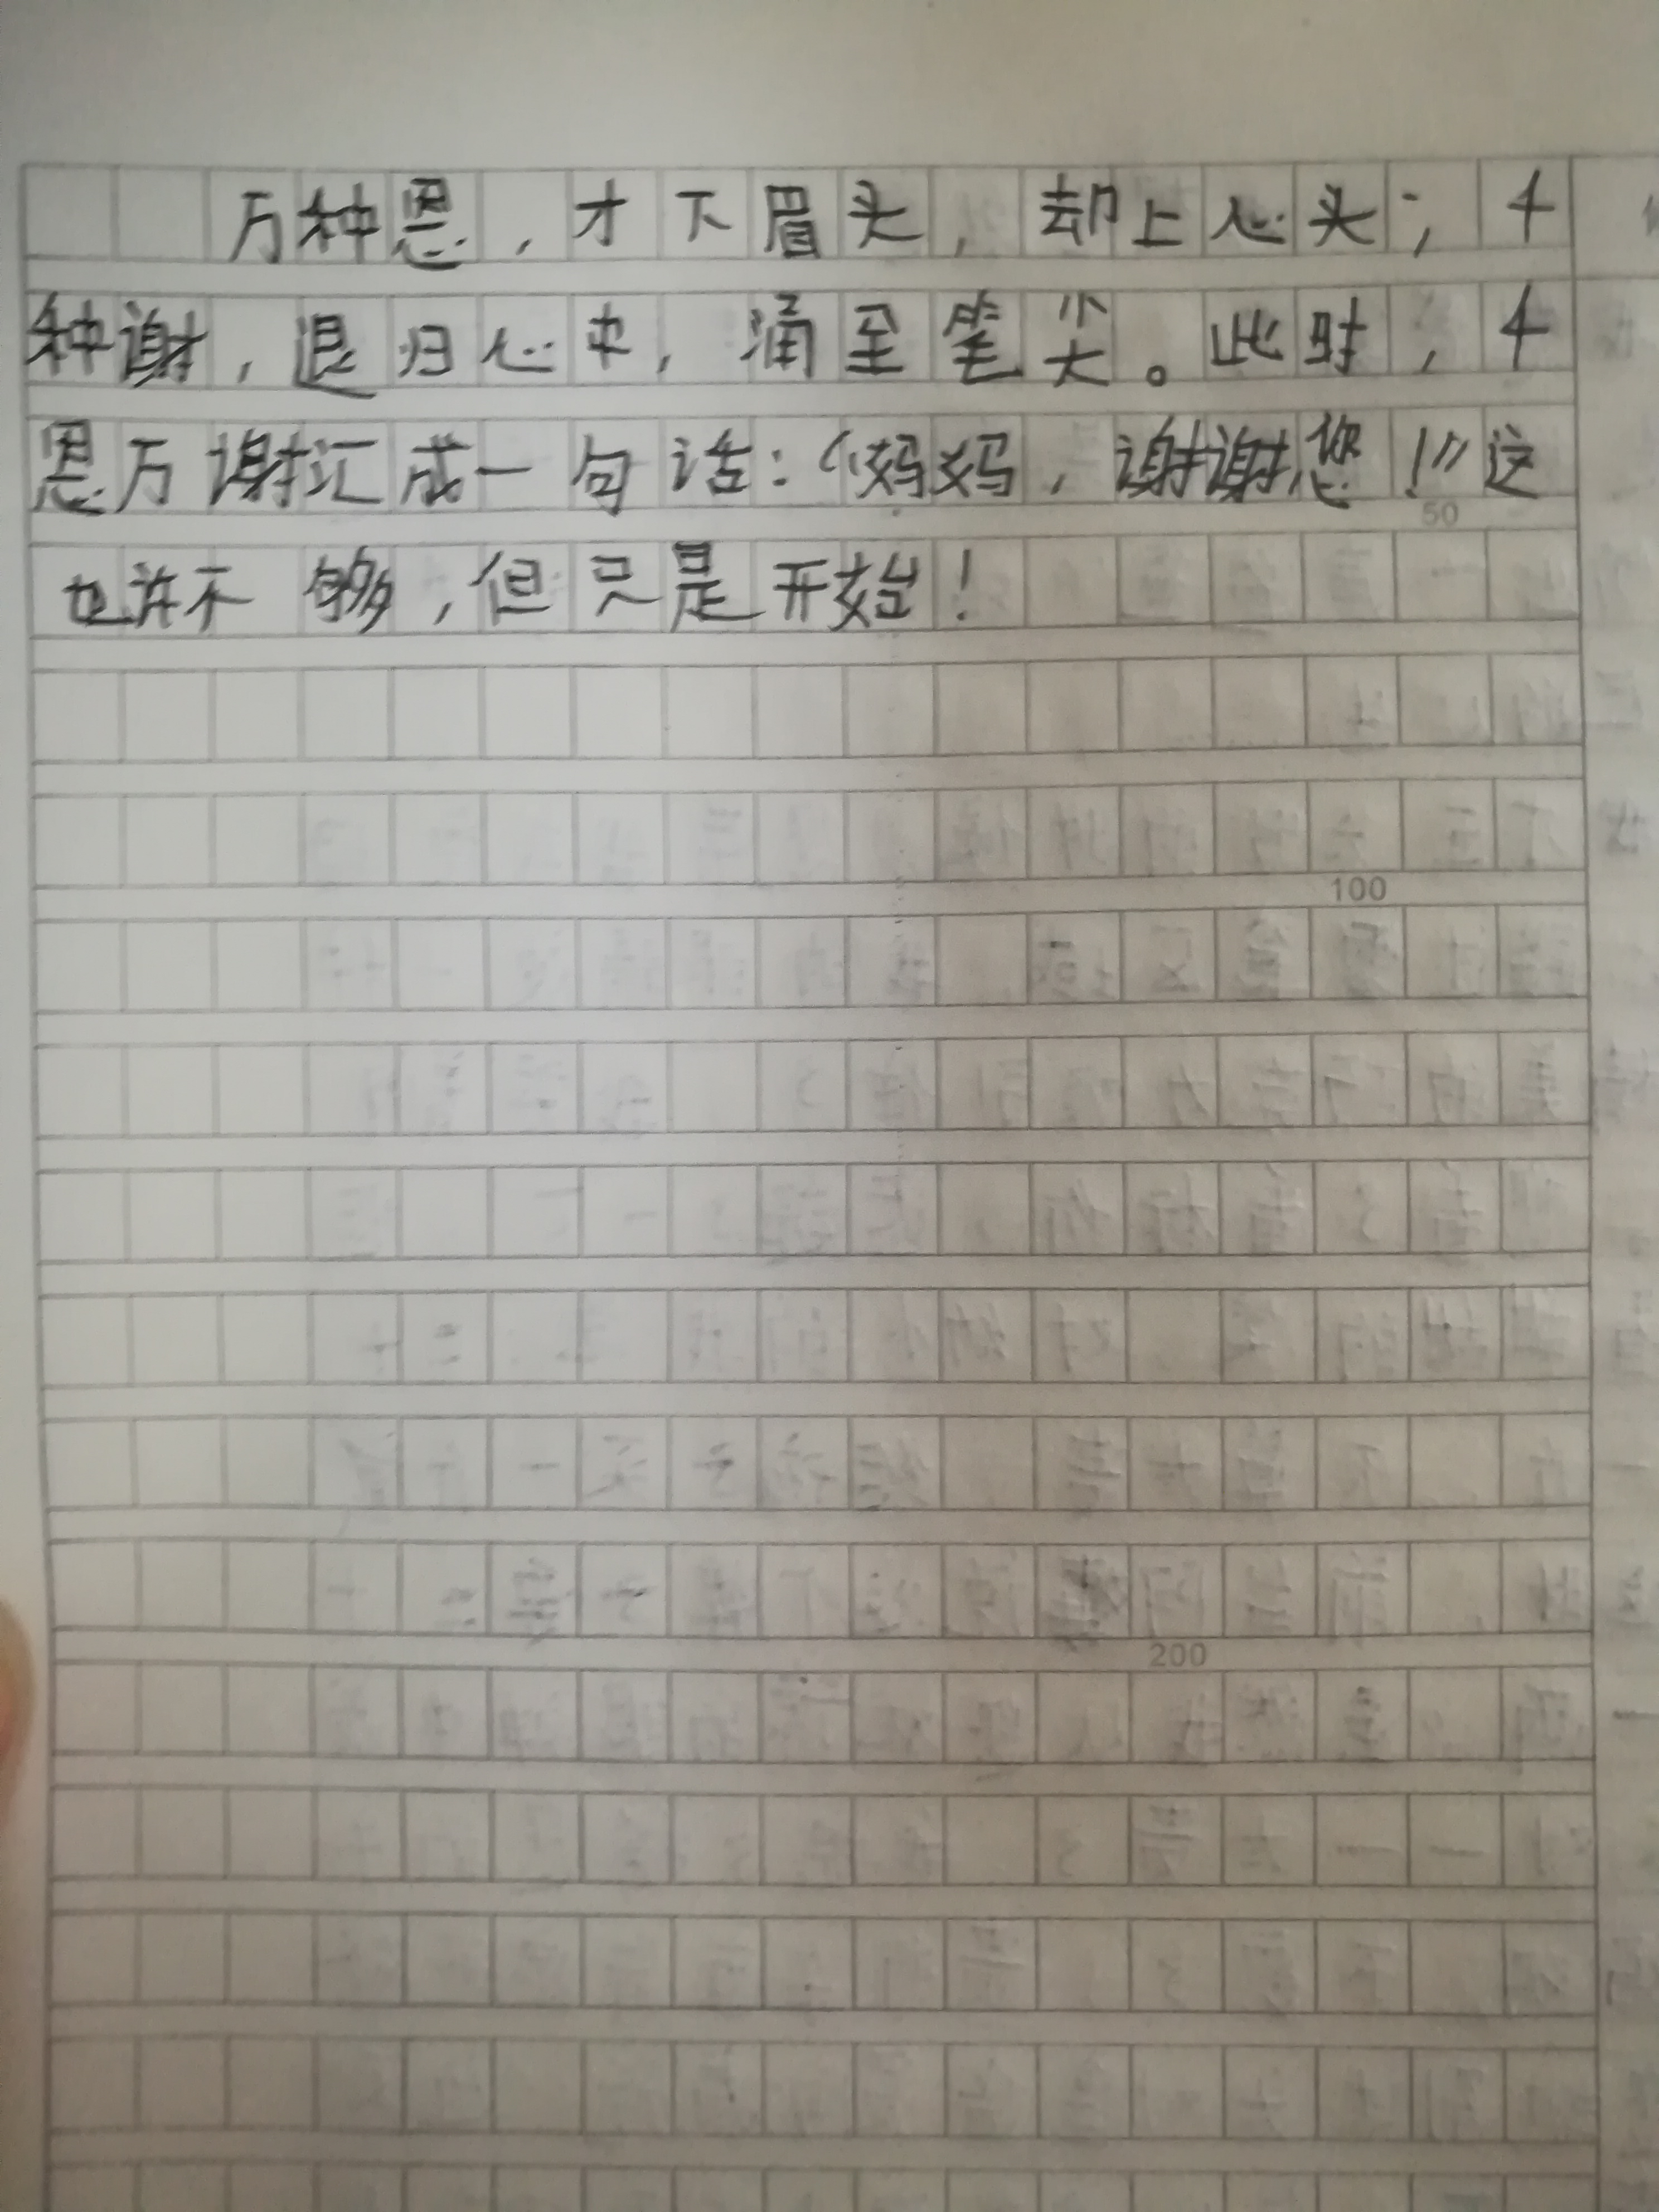 万种恩，才下眉头，却上心头；千
种谢，退归心中，涌至笔尖。此时，千
恩万谢汇成一句话：“妈妈，谢谢您！”这
50
也许不够，但只是开始！
100
200